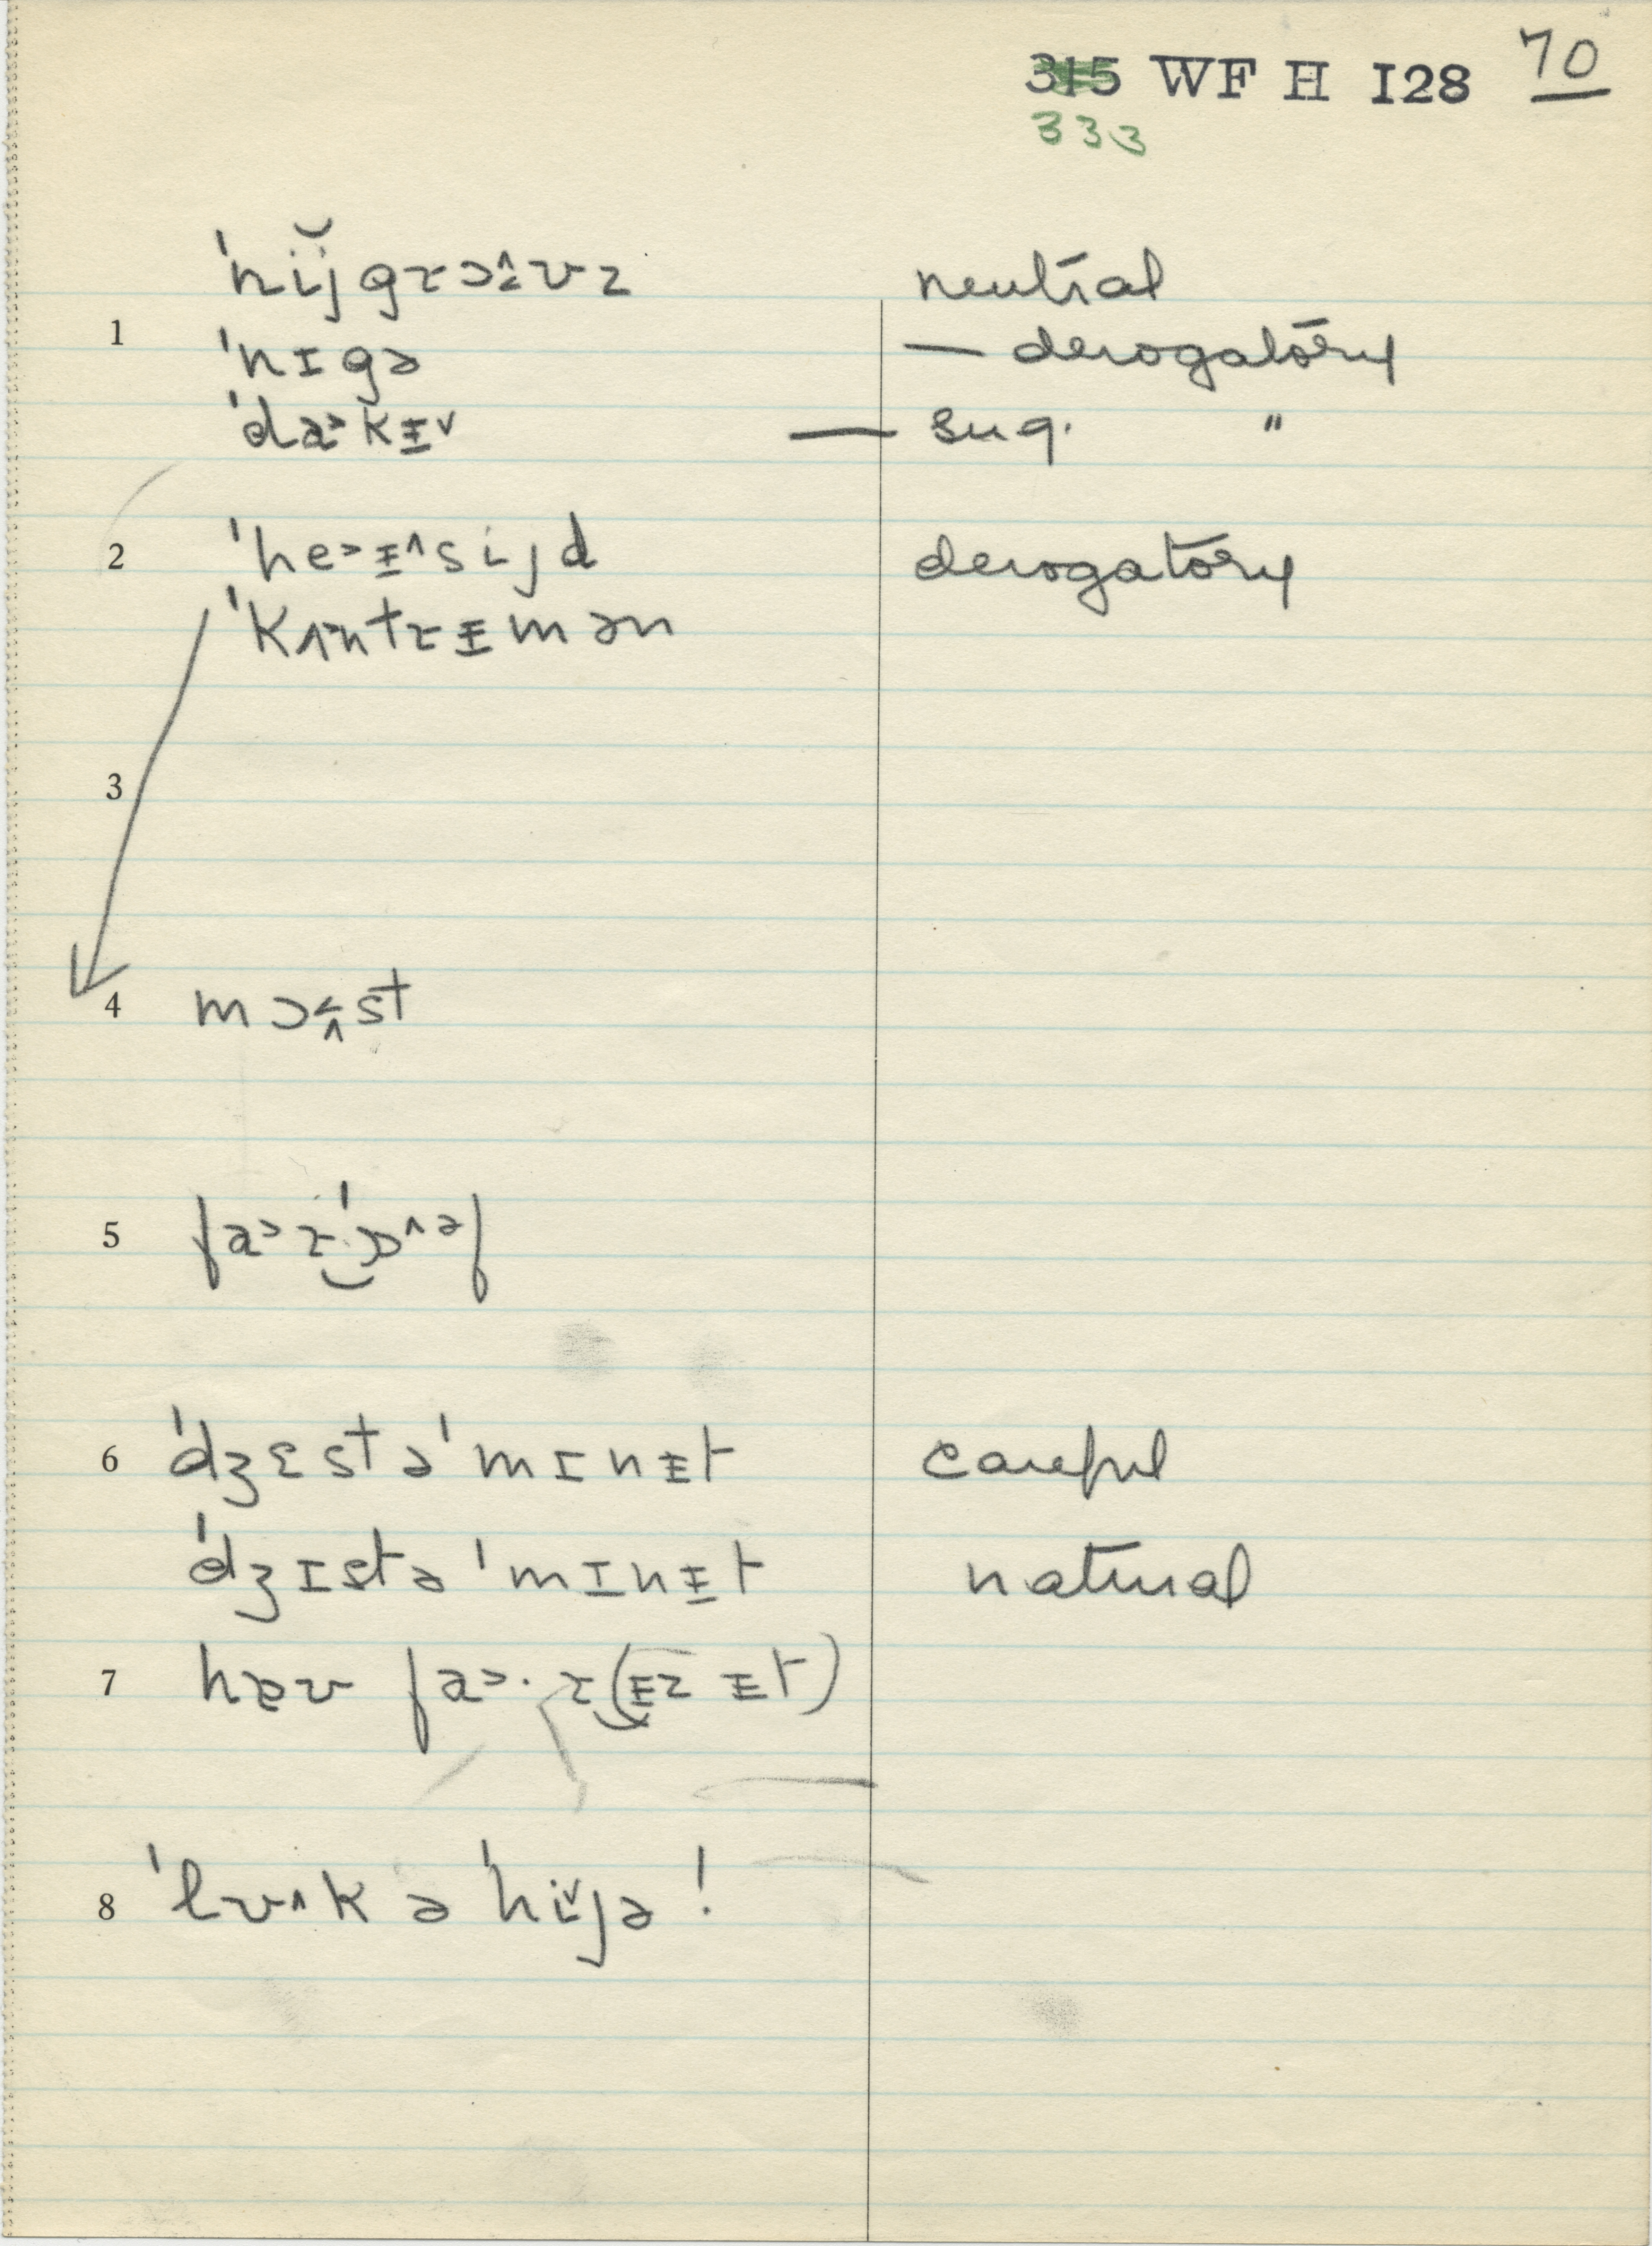 315 WF H I28 70
333
ˈnij̆gɹɔ^ʊz neutral
1 ˈnɪgə — derogatory
ˈda>kᵻ˅ — sug. "
2 ˈhe>ᵻ^sijd derogatory
ˈkʌntɹᵻmən
3
4 mɔ<^st
5 fa>ɹˈɒ^əf
6 ˈdʒɛstəˈmɪnᵻt careful
ˈdʒɪstəˈmɪnᵻt natural
7 hæʊ fa>·ɹ(ᵻz ᵻt)
8 ˈlʊ^k ə ˈhi˅jə!